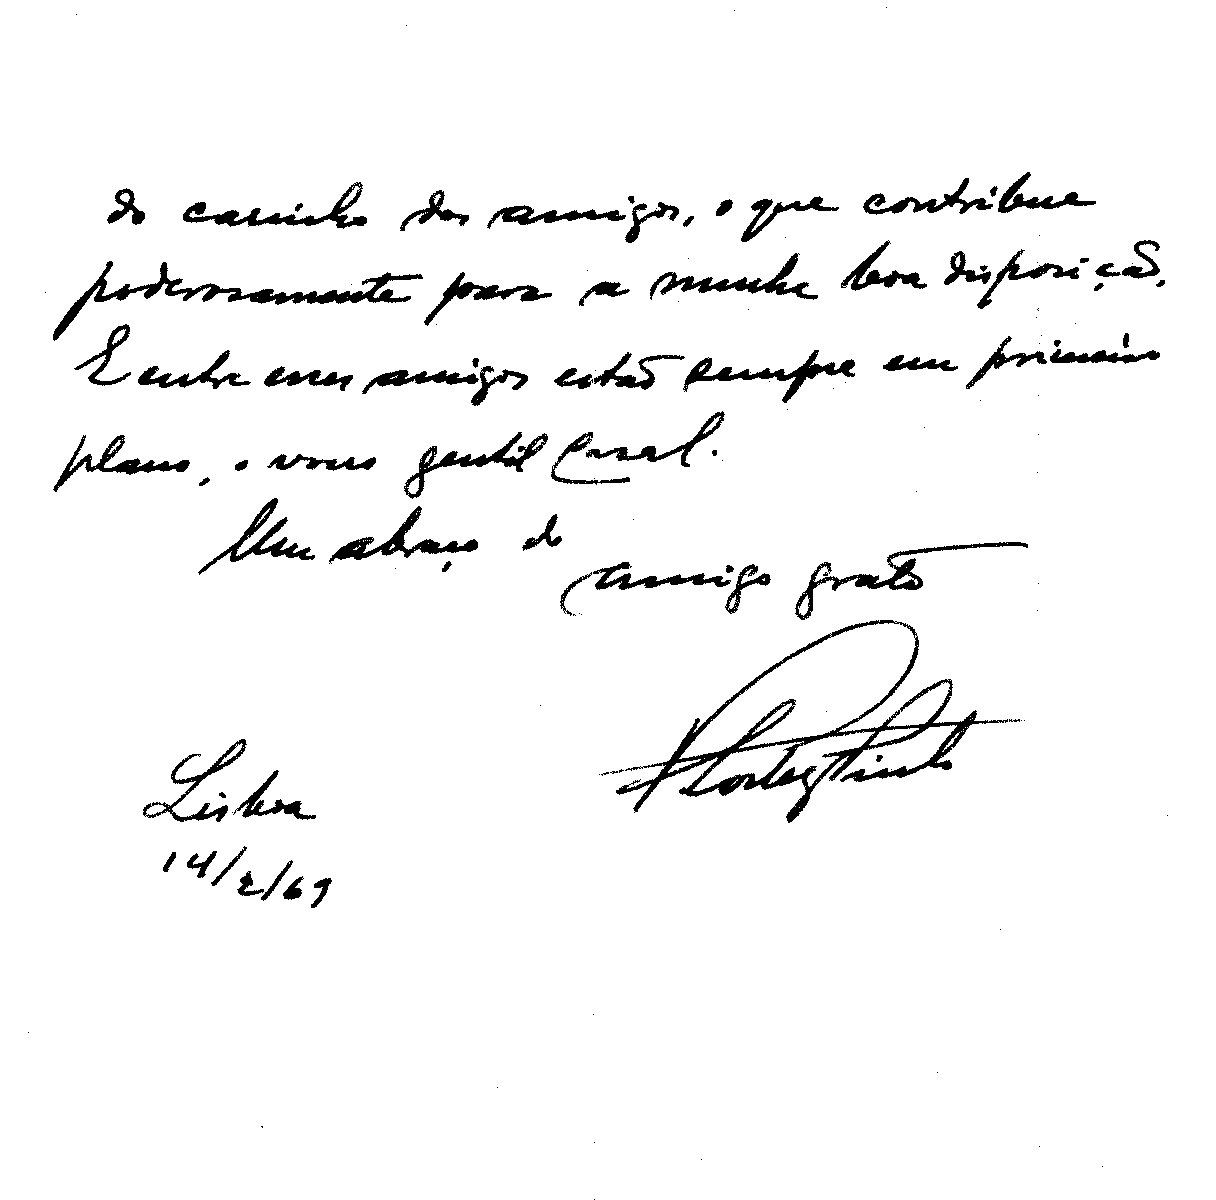 do carinho dos amigos, o que contribue
poderosamente para a minha boa disposição.
E entre esses amigos estão sempre em primeiro
plano, o vosso gentil casal.
Um abraço do
amigo grato
Lisboa
14/2/69